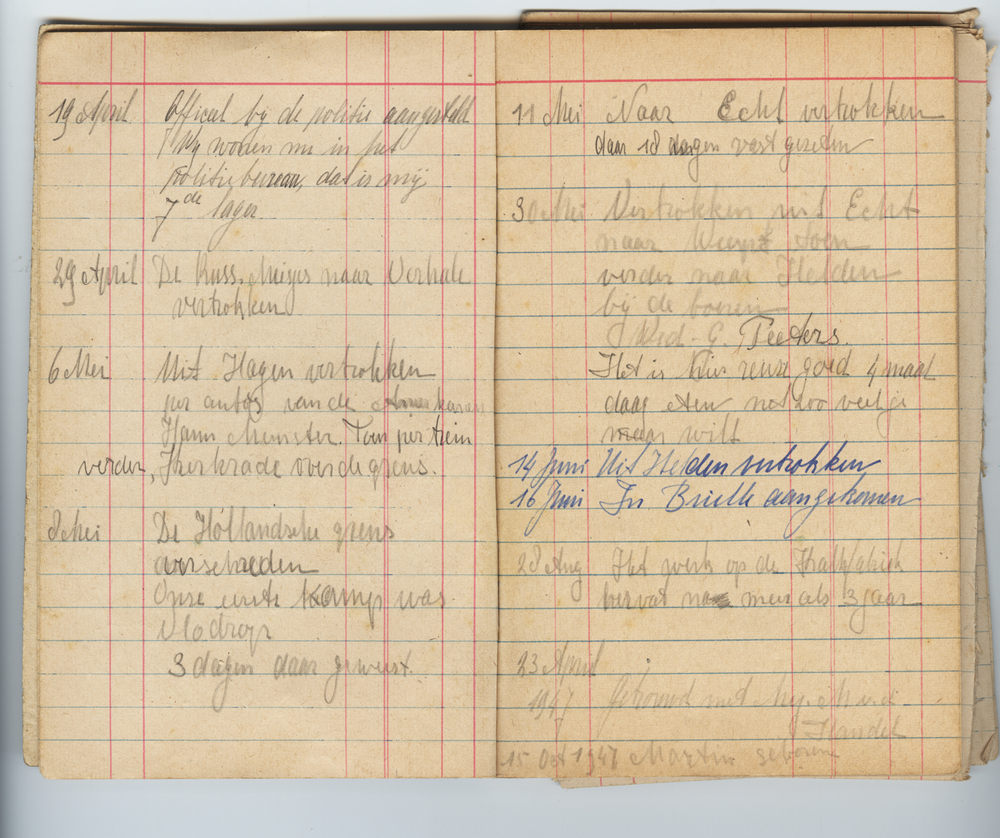 19 April Officeel bij de politie aangesteld
Wij wonen nu in het
politiebureau, dat is mij
7de lager
29 April De Russ. meisjes naar Verhale
vertrokken
6 Mei Uit Hagen vertrokken
per auto's van de Amerikanen
Hamm Munster. Toen per trein
verder, Kerkrade over de grens.
8 Mei De Hollandsche grens
overschreden
Onze eerste kamp was
Vlodrop
3 dagen daar geweest.
11 Mei Naar Echt vertrokken
daar 18 dagen vast gezeten
30 Mei Vertrokken uit Echt
naar Weert toen
verder naar Helden
bij de boeren
G. Peeters.
Het is hier reuze goed 4 maal
daags eten net zoo veel je
maar wilt
14 Juni Uit Helden vertrokken
16 Juni In Brielle aangekomen
28 Aug Het werk op de Kalkfabriek
hervat na meer als 3 jaar
23 April
1947 Getrouwd met
15 Oct 1947 Martin geboren